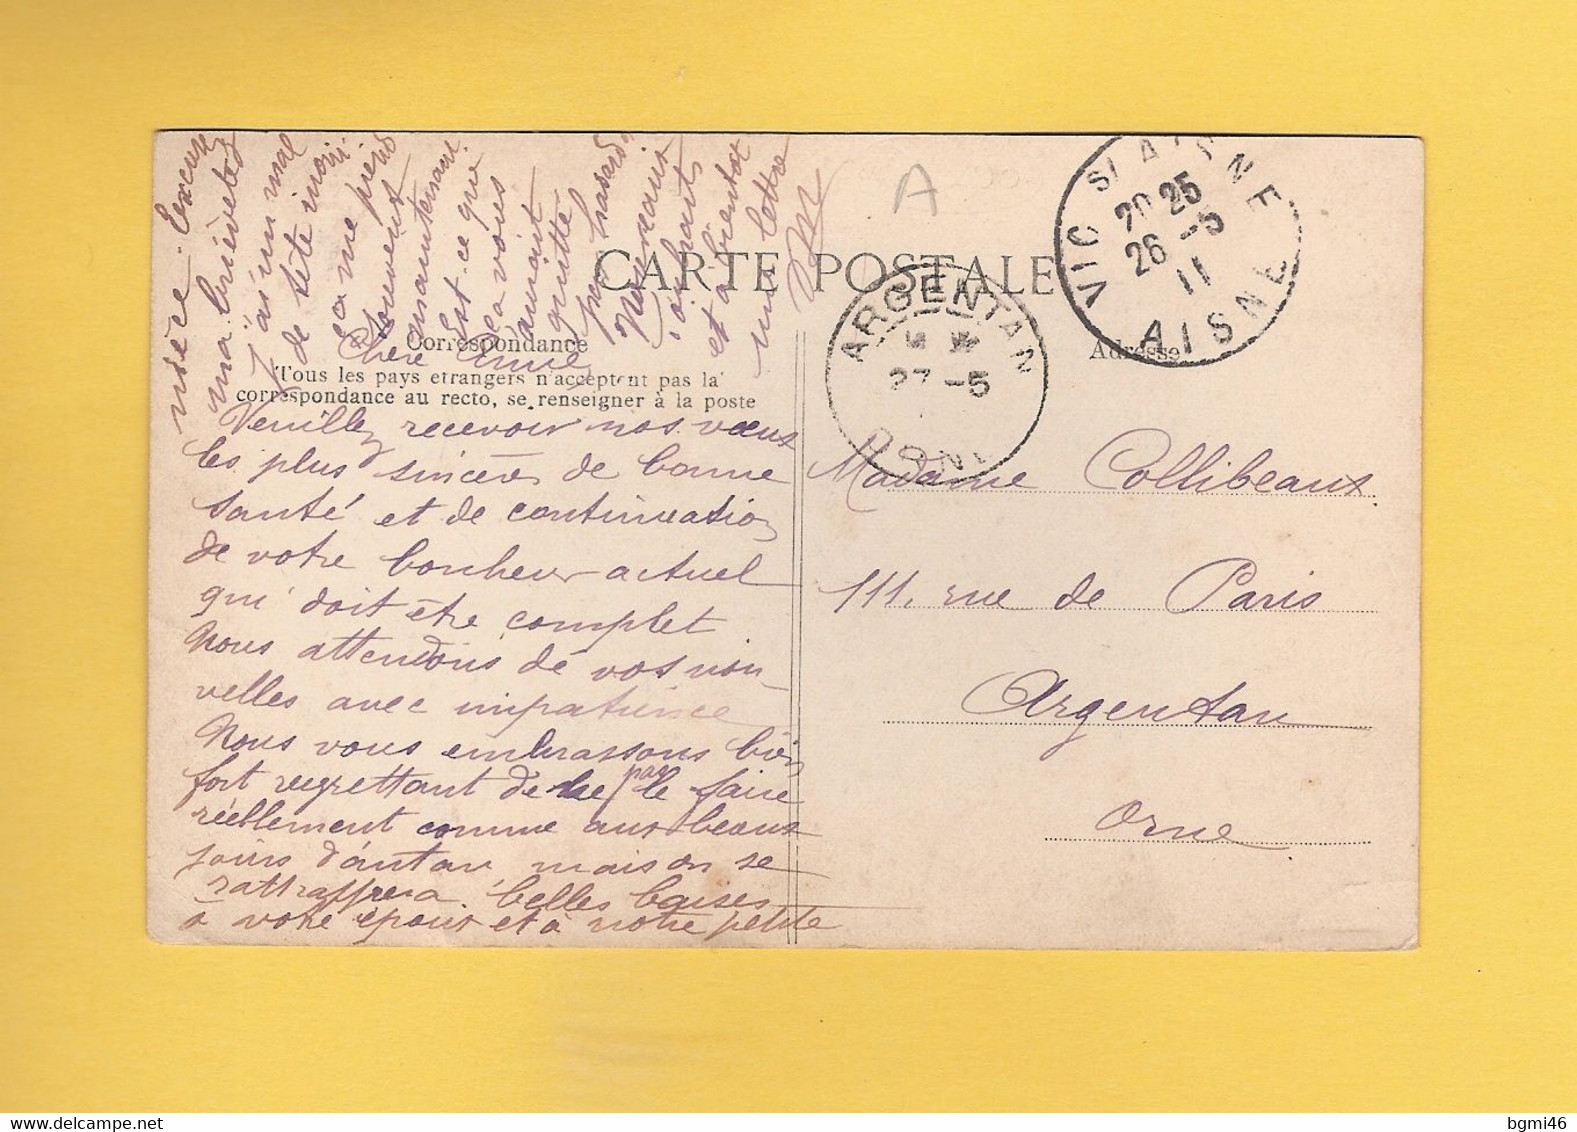 CARTE POSTALE
Correspondance
Adresse
Tous les pays etrangers n'acceptent pas la
correspondance au recto, se renseigner à la poste
A
VIC S/AISNE
20 25
26 -5
11
AISNE
ARGENTAN
27 -5
ORNE
Chère Amie
Veuillez recevoir nos vœux
les plus sincères de bonne
santé et de continuation
de votre bonheur actuel
qui doit être complet
Nous attendons de vos nou-
velles avec impatience
Nous vous embrassons bien
fort regrettant de ne pas le faire
réellement comme aux beaux
jours d'antan, mais on se
rattrappera. belles baises
à votre époux et à notre petite
nièce. Excuse
ma brièveté
j'ai un mal
de tête inouï.
ça me prend
souvent
maintenant.
Est-ce que
ça vous
aurait
quitté
par hasard
et à bientôt
une lettre
Madame Collibeaux
111, rue de Paris
Argentan
Orne
www.delcampe.net
bgmi46